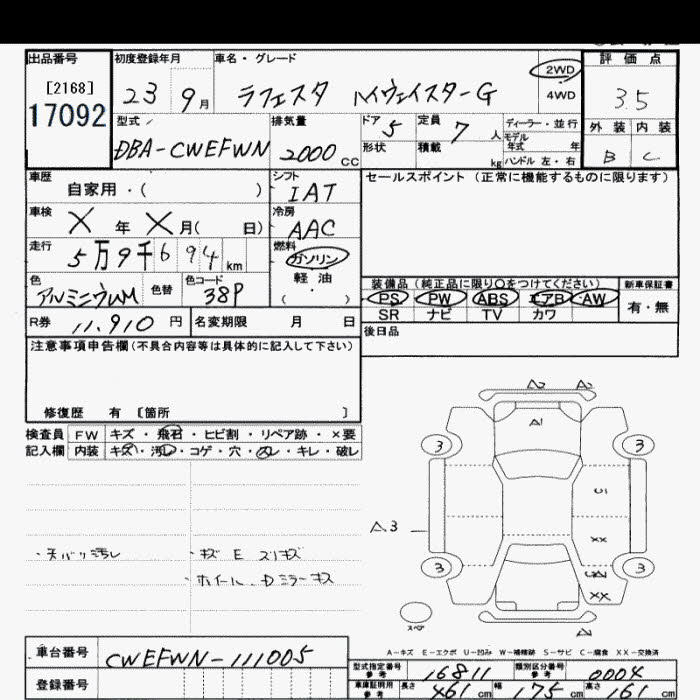 出品番号 初度登録年月 車名・グレード 評価点
[2168] 23 9月 ラフェスタ ハイウェイスターG 2WD 3.5
17092 4WD
型式 排気量 ドア 5 定員 7人 ディーラー・並行 外装 内装
DBA-CWEFWN 2000cc 形状 積載 kg モデル年式 年 B C
ハンドル 左・右
車歴 シフト セールスポイント(正常に機能するものに限ります)
自家用・( ) IAT
車検 X年 X月( 日) 冷房 AAC
走行 5万9千694km 燃料 ガソリン
軽油
・
( )
色 色替 色コード 装備品(純正品に限り○をつけてください) 新車保証書
アルミニウムM 38P PS PW ABS エアB AW 有・無
SR ナビ TV カワ
R券 11,910円 名変期限 月 日 後日品
注意事項申告欄(不具合内容等は具体的に記入して下さい)
修復歴 有 〔箇所 〕
検査員 FW キズ・飛石・ヒビ割・リペア跡・×要
記入欄 内装 キズ・汚レ・コゲ・穴・スレ・キレ・破レ
A2 A2
A1
3 3
C1
A3
XX
・天バリ汚レ ・キズ E スリキズ
・ホイール、Dミラーキズ
3 3
XX
スペア
A-キズ E-エクボ U-凹み W-補修跡 S-サビ C-腐食 XX-交換済
車台番号 CWEFWN-111005
登録番号
型式指定番号 参考 16811 類別区分番号 参考 0004
車庫証明用 参考 長さ 461cm 幅 175cm 高さ 161cm